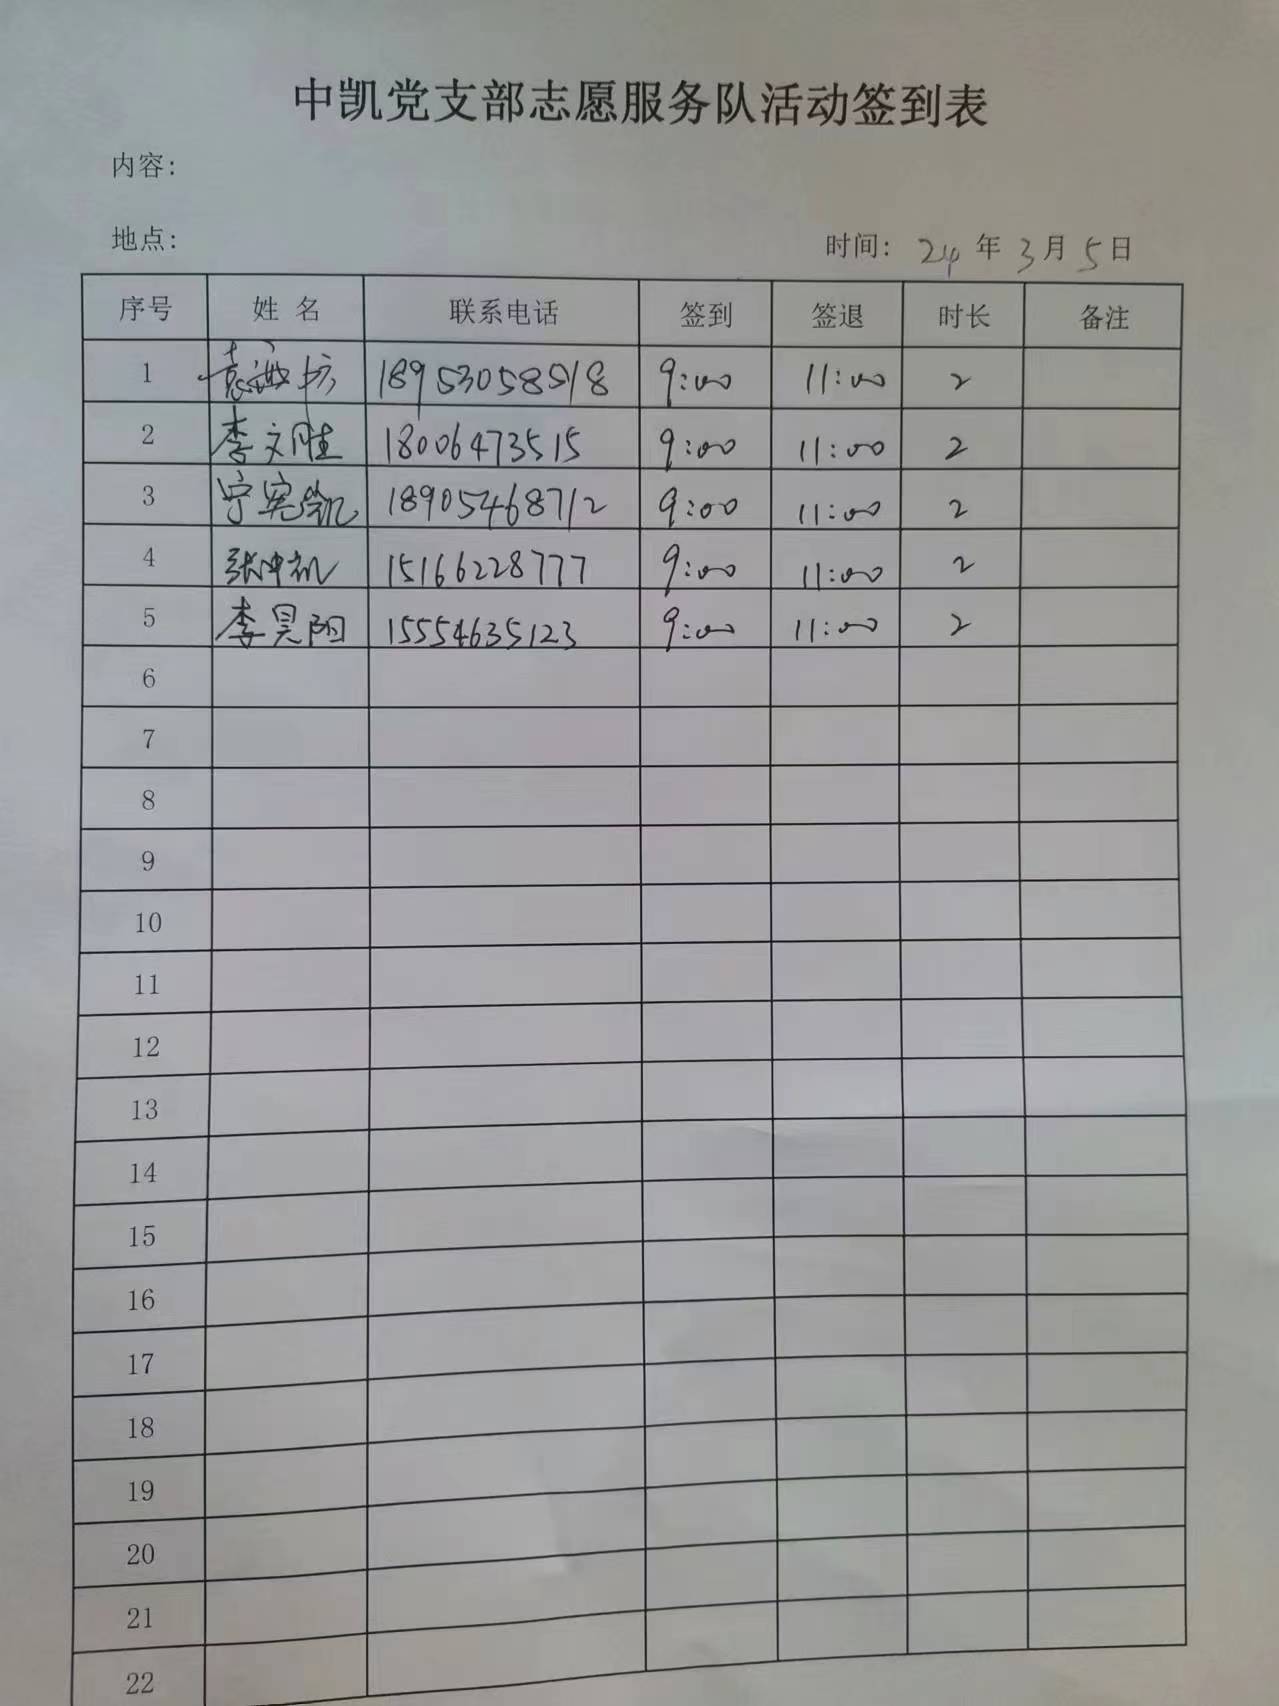 中凯党支部志愿服务队活动签到表
内容:
地点:
时间: 24 年 3 月 5 日
序号 姓 名 联系电话 签到 签退 时长 备注
1 袁 18953058518 9:00 11:00 2
2 李文胜 18006473515 9:00 11:00 2
3 宁宪凯 18905468712 9:00 11:00 2
4 张中凯 15166228777 9:00 11:00 2
5 李昊阳 15554635123 9:00 11:00 2
6
7
8
9
10
11
12
13
14
15
16
17
18
19
20
21
22